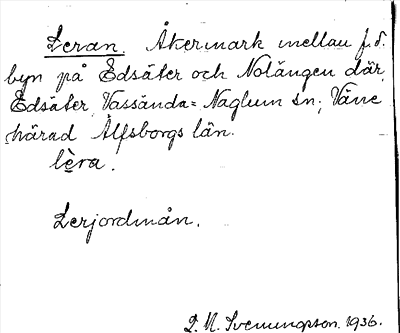 Leran. Åkermark mellan f.d.
byn på Edsäter och Nolängen där,
Edsäter, Vassända=Naglum sn; Väne
härad Älfsborgs län.
lèra.
Lerjordmån.
P. M. Svenungson. 1936.